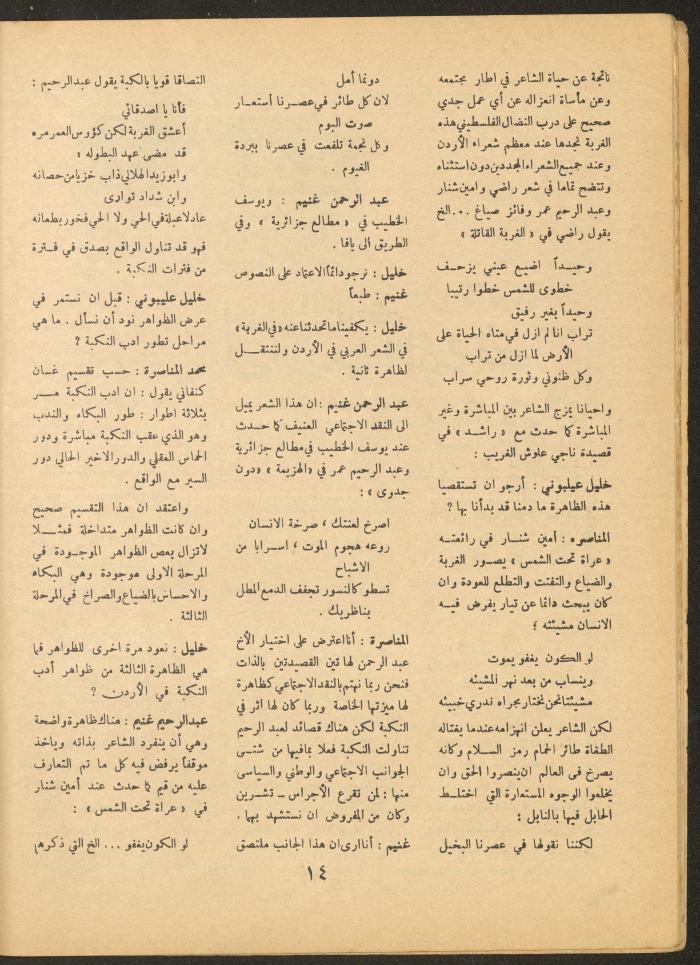 ناتجة عن حياة الشاعر في اطار مجتمعه
وعن مأساة انعزاله عن أي عمل جدي
صحيح على درب النضال الفلسطيني هذه
الغربة نجدها عند معظم شعراء الأردن
وعند جميع الشعراء المجددين دون استثناء
وتتضح تماما في شعر راضي وامين شنار
وعبد الرحيم عمر وفائز صياغ ... الخ
يقول راضي في « الغربة القاتلة »
وحيـداً اضيع عيني يزحـف
خطوى للشمس خطوا رتيبا
وحيداً بغير رفيق
تراب انا لم ازل في متاه الحياة على
الأرض لما ازل من تراب
وكل ظنوني وثورة روحي سراب
واحيانا يمزج الشاعر بين المباشرة وغير
المباشرة كما حدث مع « راشد » في
قصيدة ناجي علوش الغريب :
خليل عيلبوني : أرجو ان تستقصيا
هذه الظاهرة ما دمنا قد بدأنا بها ؟
المناصره : أمين شنار في رائعتـه
« عراة تحت الشمس » يصـور الغربة
والضياع والتفتت والتطلع للعودة وان
كان يبحث دائما عن تيار يفرض فيـه
الانسان مشيئته ؛
لو الكون يغفو يموت
وينساب من بعد نهر المشيئه
مشيئتنا نحن نختار مجراه ندري خبيئه
لكن الشاعر يعلن انهزامه عندما يغتاله
الطغاة طائر الحمام رمز السـلام وكانه
يصرخ فى العالم ان ينصروا الحق وان
يخلعوا الوجوه المستعارة التي اختلـط
الحابل فيها بالنابل :
لكننا نقولها في عصرنا البخيل
دونما أمل
لان كل طائر في عصـرنا أستعـار
صوت البوم
وكل نجمة تلفعت في عصرنا ببردة
الغيوم .
عبد الرحمن غنيم : ويوسف
الخطيب في « مطالع جزائرية » وفي
الطريق الى يافا .
خليل : نرجو دائماً الاعتماد على النصوص
غنيم : طبعاً
خليل : يكفينا ما تحدثنا عنه « في الغربة »
في الشعر العربي في الأردن ولننتقـل
لظاهرة ثانية .
عبد الرحمن غنيم : ان هذا الشعر يميل
الى النقد الاجتماعي العنيف كما حـدث
عند يوسف الخطيب في مطالع جزائرية
وعبد الرحيم عمر في « الهزيمة » « دون
جدوى » :
اصرخ لعنتك ، صرخة الانسان
روعه هجوم الموت ، اسـرابا من
الاشباح
تسطو كالنسور تجفف الدمع المطل
بناظريك .
المناصرة : أنا اعترض على اختيار الأخ
عبد الرحمن لها تين القصيدتين بالذات
فنحن ربما نهتم بالنقد الاجتماعي كظاهرة
لها ميزتها الخاصة وربما كان لها اثر في
النكبة لكن هناك قصائد لعبد الرحيم
تناولت النكبة فعلا بما فيها من شتـى
الجوانب الاجتماعي والوطني والسياسى
منها : لمن تقرع الأجراس ــ تشـرين
وكان من المفروض ان نستشهد بهما .
غنيم : أنا ارى ان هذا الجانب ملتصق
التصاقا قويا بالنكبة يقول عبد الرحيم :
فأنا يا اصدقائي
أعشق الغربة لكن كؤوس العمر مره
قد مضى عهد البطوله ؛
وابو زيد الهلالي ذاب خزيا من حصانه
وابن شداد توارى
عاد لا عبلة في الحي ولا الحي فخور بطعانه
فهو قد تناول الواقع بصدق في فـترة
من فترات النكبة .
خليل عليبوني : قبل ان نستمر في
عرض الظواهر نود أن نسأل . ما هي
مراحل تطور ادب النكبة ؟
محمد المناصرة : حسب تقسيم غسان
كنفاني يقول : ان ادب النكبة مـر
بثلاثة اطوار : طور البكاء والندب
وهو الذي عقب النكبة مباشرة ودور
الحماس العقلي والدور الاخير الحالي دور
السير مع الواقع .
واعتقد ان هذا التقسيم صحيح
وان كانت الظواهر متداخلة فمثـلا
لا تزال بعض الظواهر الموجـودة في
المرحلة الاولى موجودة وهي البكاء
والاحساس بالضياع والصراخ في المرحلة
الثالثة .
خليل : نعود مرة اخرى للظواهر فما
هي الظاهرة الثالثة من ظواهر أدب
النكبة في الأردن ؟
عبد الرحيم غنيم : هناك ظاهرة واضحة
وهي أن ينفرد الشاعر بذاته وياخذ
موقفاً يرفض فيه كل ما تم التعارف
عليه من قيم كما حدث عند أمين شنار
في « عراة تحت الشمس » :
لو الكون يغفو ... الخ التي ذكرهم
١٤